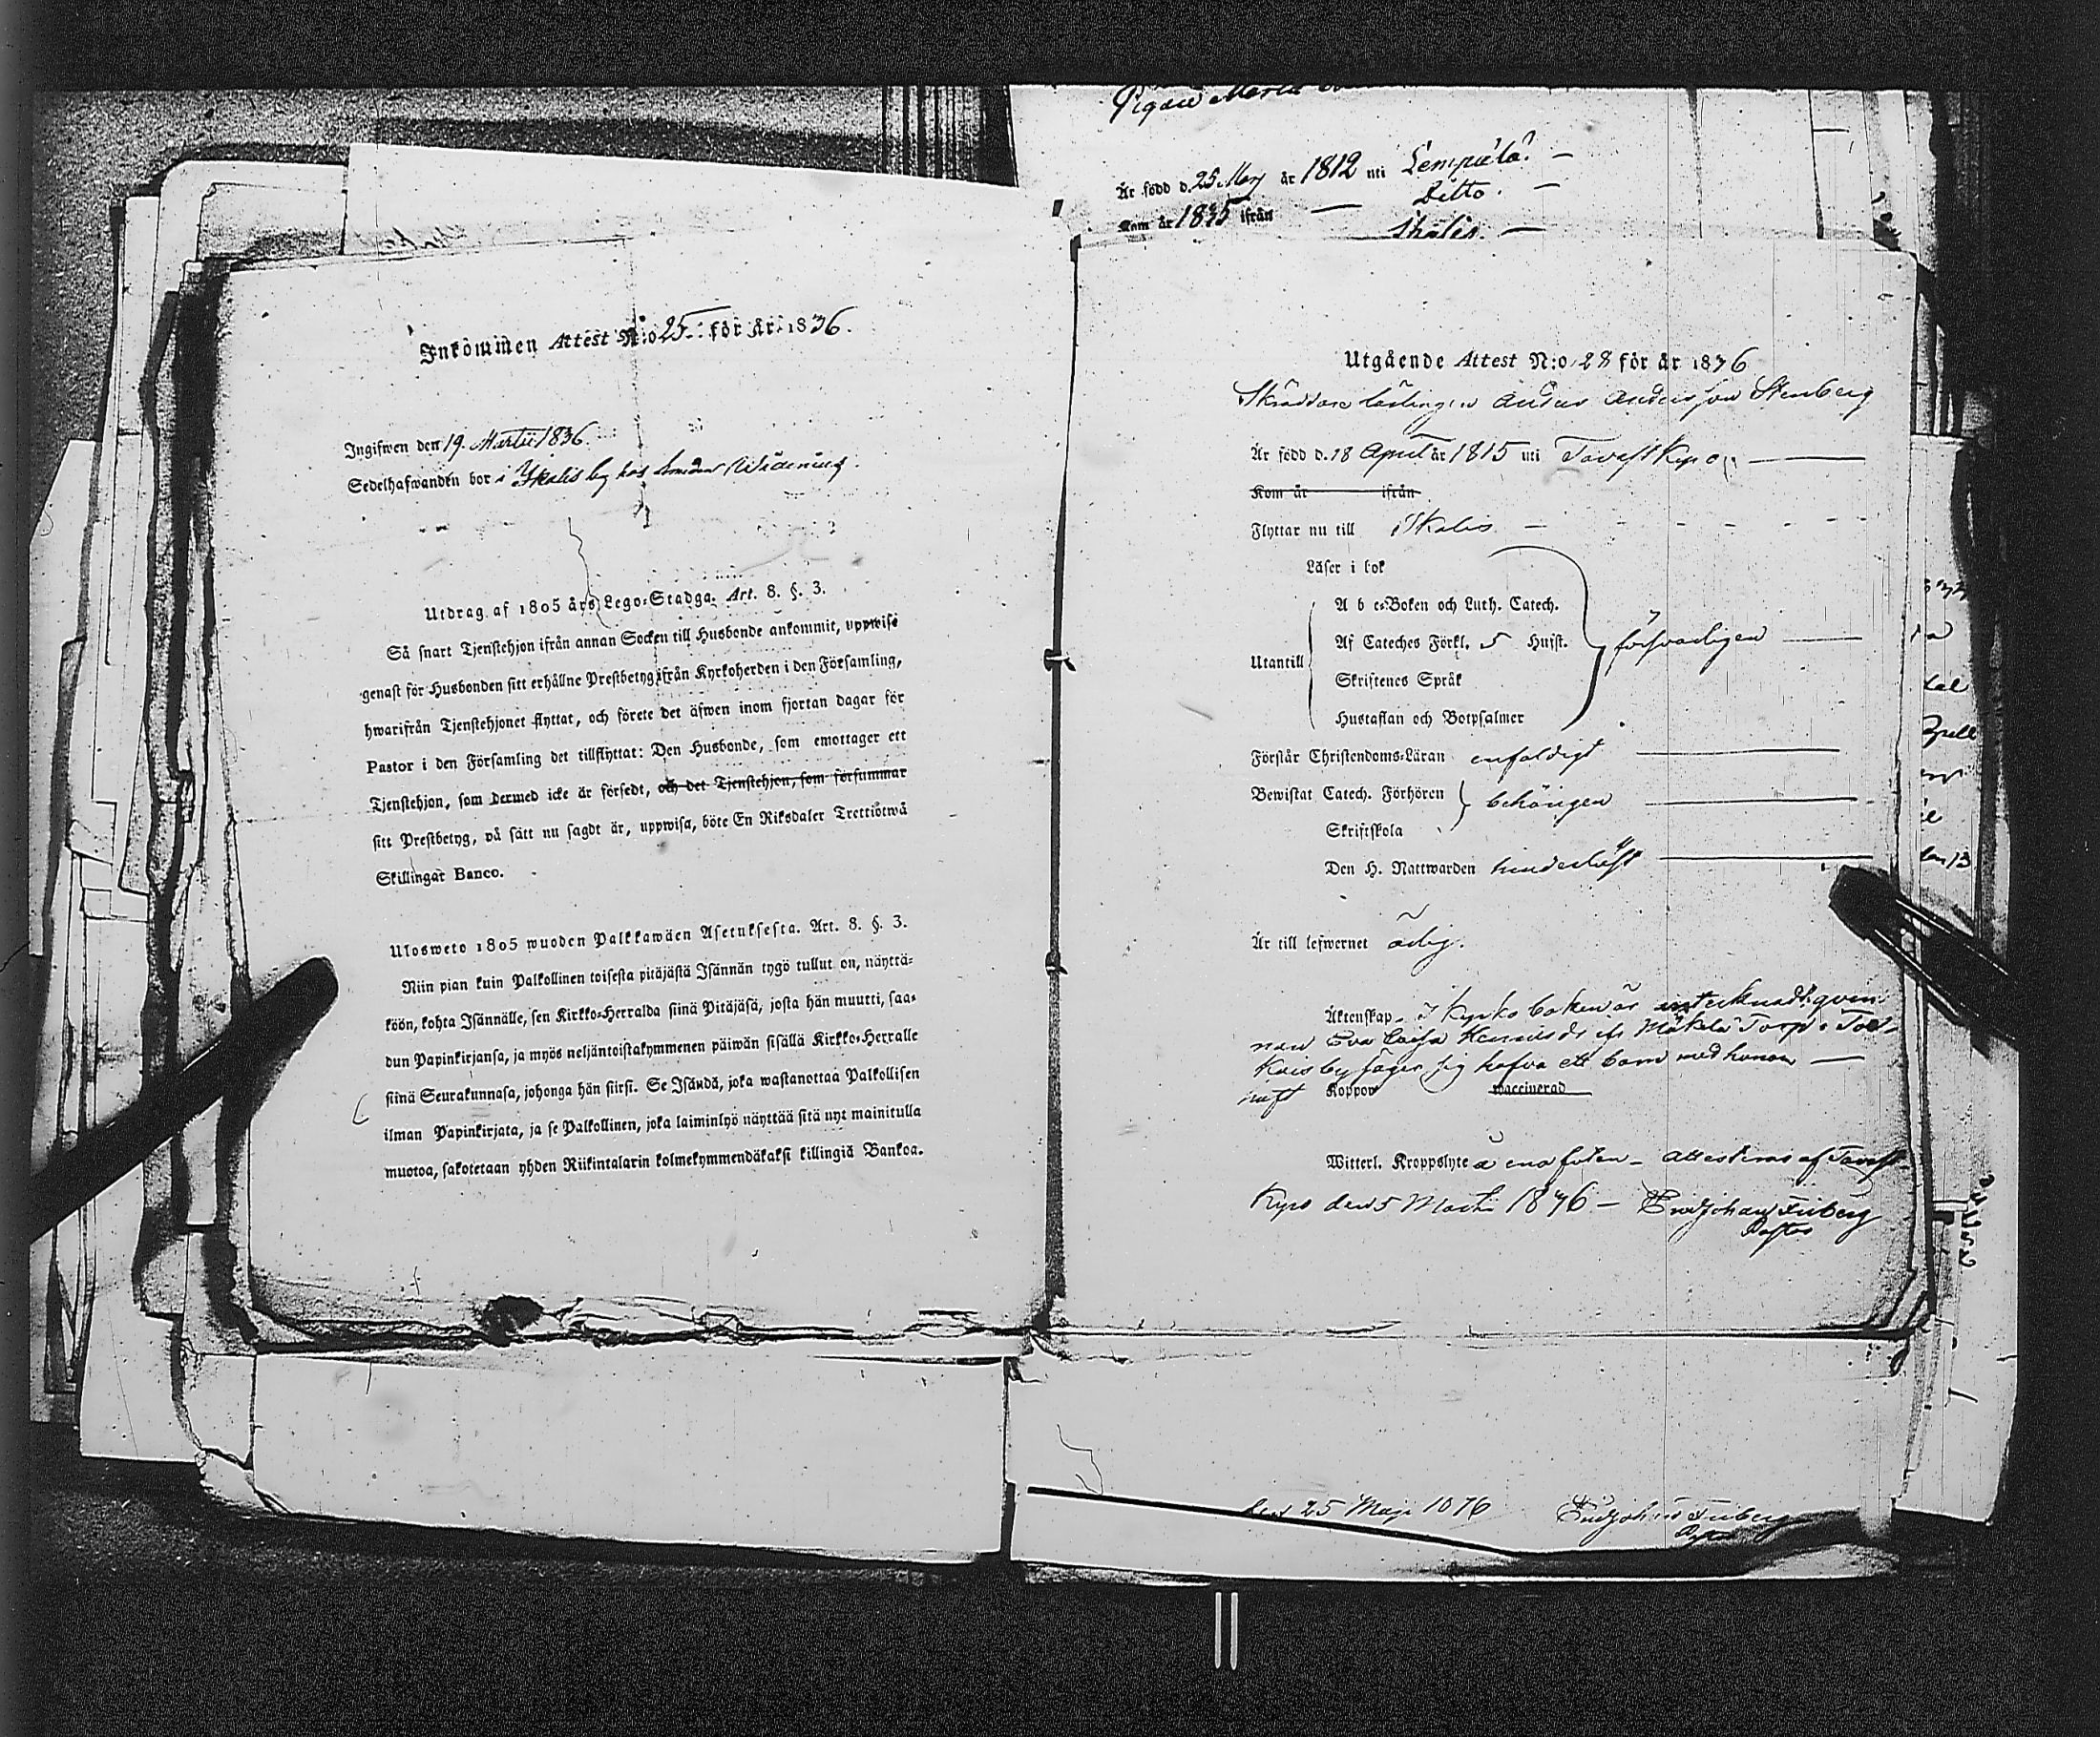 Inkommen Attest N:o 25 för år 1836.
Ingifwen den 19. Martii 1836.
Sedelhafwanden bor i Ikalis by hos
Utdrag af 1805 års Lego-Stadga. Art. 8. §. 3.
Så snart Tjenstehjon ifrån annan Socken till Husbonde ankommit, uppwise
genast för Husbonden sitt erhållne Prestbetyg ifrån Kyrkoherden i den Församling,
hwarifrån Tjenstehjonet flyttat, och förete det äfwen inom fjortan dagar för
Pastor i den Församling det tillflyttat: Den Husbonde, som emottager ett
Tjenstehjon, som dermed icke är försedt, och det Tjenstehjon, som försummar
sitt Prestbetyg, på sätt nu sagdt är, uppwisa, böte En Riksdaler Trettiotwå
Skillingar Banco.
Ulosweto 1805 wuoden Palkkawäen Asetuksesta. Art. 8. §. 3.
Niin pian kuin Palkollinen toisesta pitäjästä Isännän tygö tullut on, näyttä-
köön, kohta Isännälle, sen Kirkko-Herralda siinä Pitäjäsä, josta hän muutti, saa-
dun Papinkirjansa, ja myös neljäntoistakymmenen päiwän sisällä Kirkko-Herralle
siinä Seurakunnasa, johonga hän siirsi. Se Isändä, joka wastanottaa Palkollisen
ilman Papinkirjata, ja se Palkollinen, joka laiminlyö näyttää sitä nyt mainitulla
muotoa, sakotetaan yhden Riikintalarin kolmekymmendäkaksi killingiä Bankoa.
Pigan Maria
Är född d. 25 May år 1812 uti Lempälä. —
Kom år 1835 ifrån — Ditto. —
Ikalis. —
Utgående Attest N:o 28 för år 1836
Skräddare lärlingen Anders Andersson Stenberg
Är född d. 18 April år 1815 uti Tavastkyro —
Kom år ifrån
Flyttar nu till Ikalis. —
Läser i bok
A b c-Boken och Luth. Catech.
Utantill Af Cateches Förkl. 5 Hufst. försvarligen —
Skriftenes Språk
Hustaflan och Botpsalmer
Förstår Christendoms-Läran enfaldigt —
Bewistat Catech. Förhören behörigen —
Skriftskola
Den H. Nattwarden —
Är till lefwernet ärlig.
Äktenskap. I Kyrko boken är antecknadt: qvin-
nan Eva Lovisa Henriksdr ifr Mäkelä Torp i
by säger sig hafva ett barn med honom —
haft Koppor waccinerad
Witterl. Kroppslyte å ena foten — attesteras af Tavast-
Kyro den 5 Martii 1836 — Friberg
Pastor
den 25 Maji 1836 Friberg
Pastor